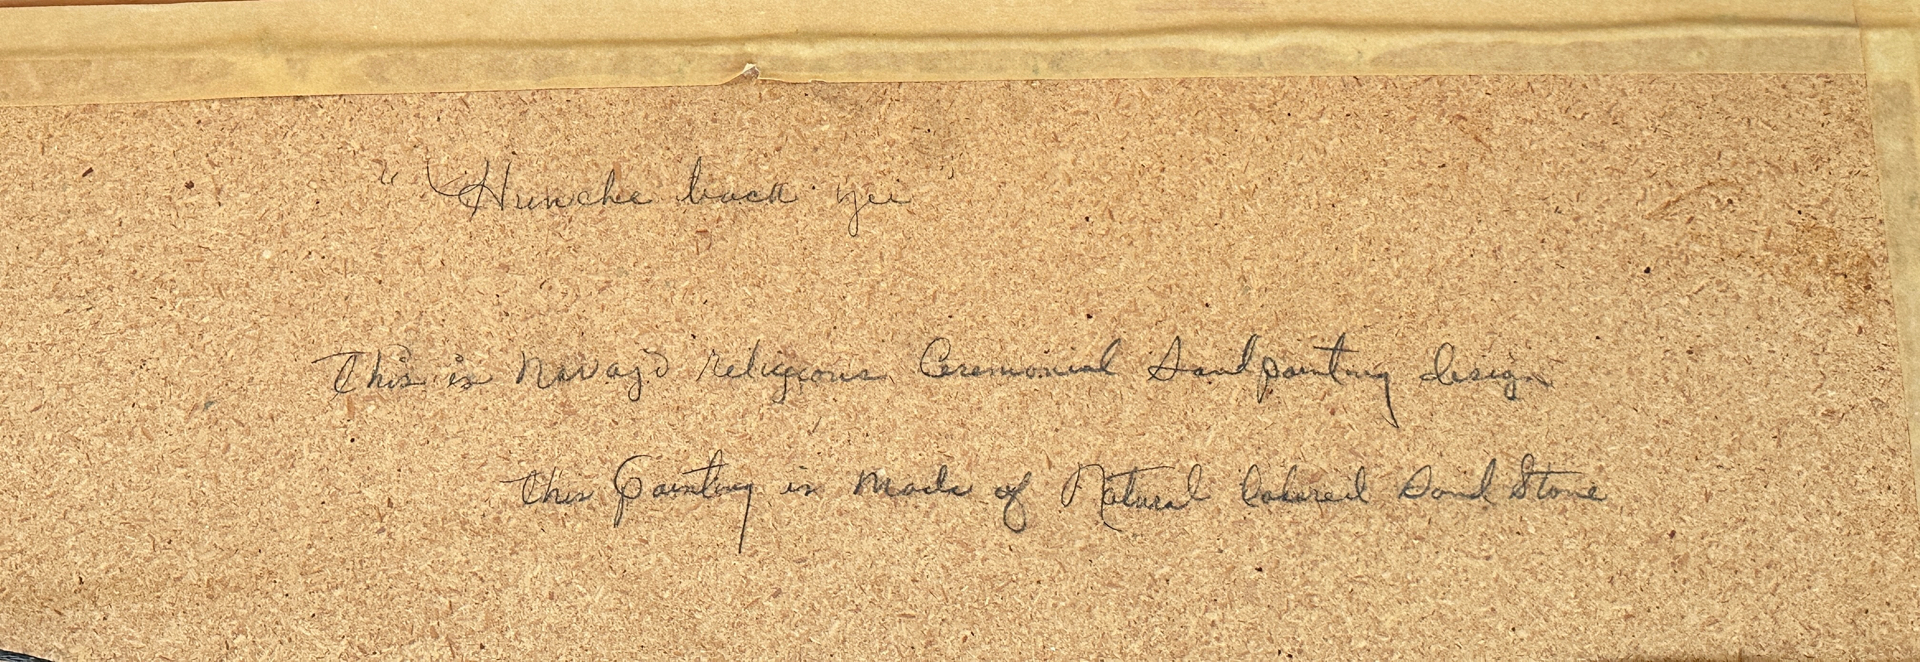 "Hunche back yei"
This is Navajo religious Ceremonial Sandpainting design
this painting is made of Natural Colored Sand Stone